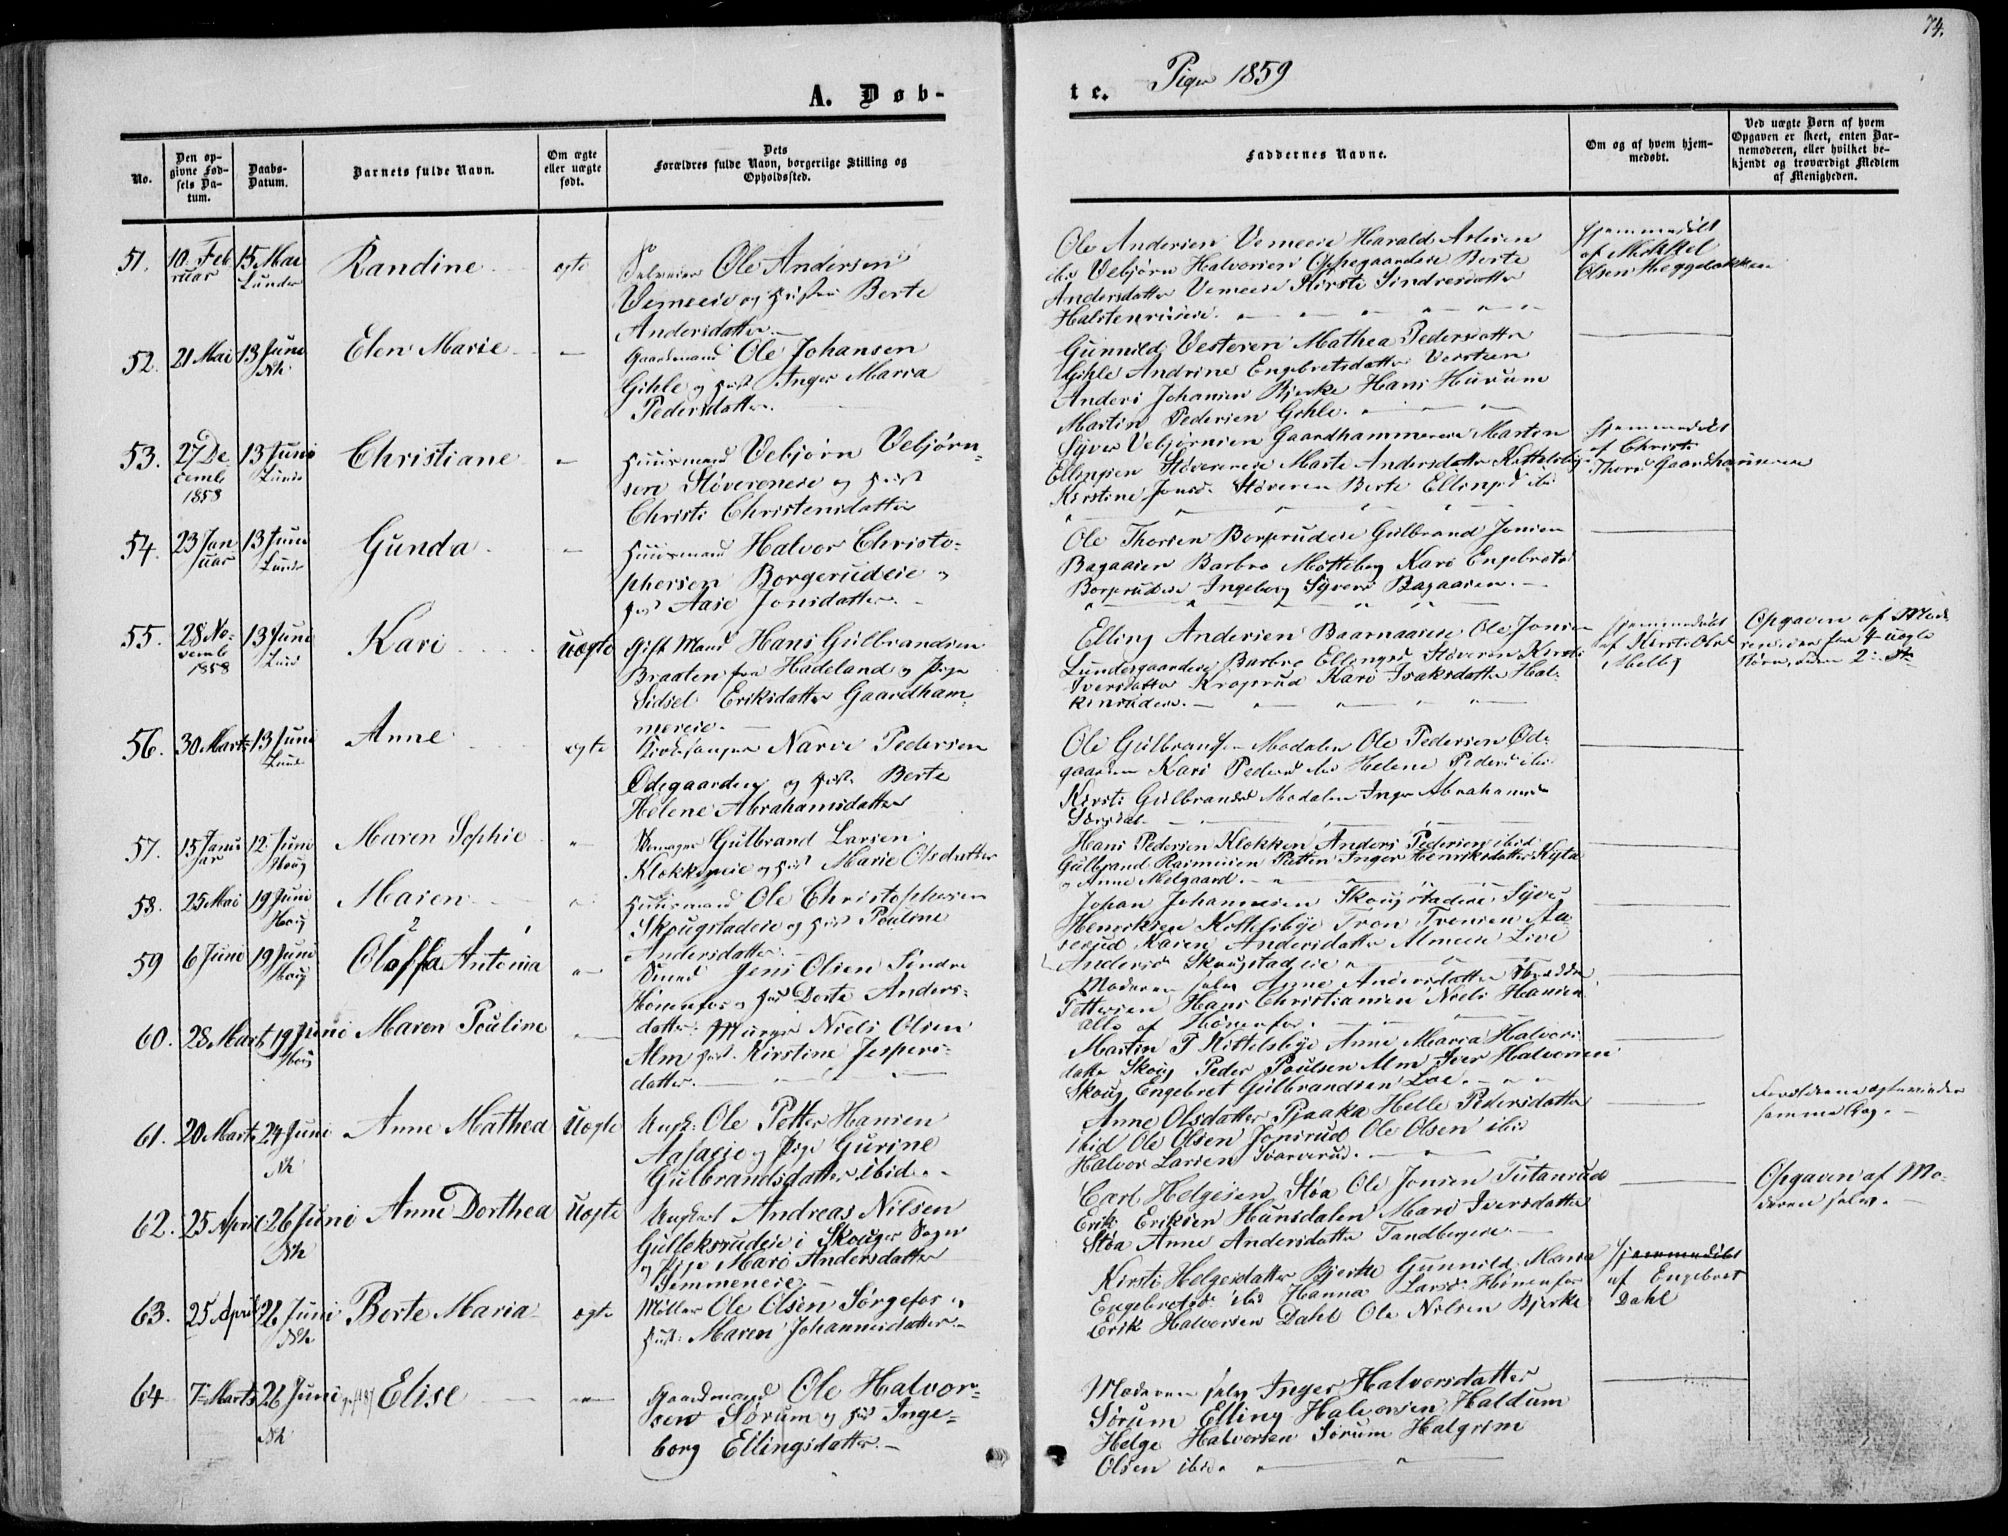 74.
A. Døb-
te.
Piger 1859
No.
Den op-
givne Fød-
sels Da-
tum.
Daabs-
Datum.
Barnets fulde Navn.
Om ægte
eller uægte
født.
Dets
Forældres fulde Navn, borgerlige Stilling og
Opholdssted.
Faddernes Navne.
Om og af hvem hjem-
medøbt.
Ved uægte Børn af hvem
Opgaven er skeet, enten Bar-
nemoderen, eller hvilket be-
kjendt og troværdigt Medlem
af Menigheden.
51.
10. Feb
ruar
15 Mai
Lunder
Randine
ægte
Selveier Ole Andersen
Vemeeie og Hustru Berte
Andersdatter
Ole Andersen Vemeeie Harald Aslesen
Vebjørn Halvorsen Berte
Andersdatter Vemeeie Kirsti Sindresdatter
Hjemmedøbt
af Mikkel
Olsen Heggebakken
52.
21 Mai
13 Juni
Nh.
Elen Marie
Gaardmand Ole Johansen
Gihle og Hust Inger Maria
Pedersdatter
Gunnild Vesteren Mathea Pedersdatter
Gihle Andrine Engebretsdatter Vesteren
Anders Johansen Bjerke Hans Hurum
Martin Pedersen Gihle.
53.
27 De
cemb
1858
13 Juni
Lunder
Christiane
Huusmand Vebjørn Vebjørn-
sen Støvereneie og Hust
Christi Christensdatter
Syver Vebjørnsen Gaardhammereie Morten
Ellingsen Støvereneie Marte Andersdatter
Kirstine Jonsd. Støveren Berte Ellingsd ibid
Hjemmedøbt
af Christi
Thors Gaardhammereie
54.
23 Jan
uar
13 Juni
Lunder
Gunda
Huusmand Halvor Christo-
phersen Borgerudeie og
Hust Aase Jonsdatter.
Ole Thorsen Borgerudeie Gulbrand Jonsen
Bagaasen Barbro Møtteberg Kari Engebretsd
Borgerudeie Ingeborg Syvers Bagaasen.
55.
28 No-
vemb
1858
13 Juni
Lund
Kari
uægte
Gift Mand Hans Gulbrandsen
Braaten fra Hadeland og Pige
Sidsel Eriksdatter Gaardham-
mereie.
Elling Andersen Ole Jonsen
Lundesgaardeie Barbro Ellingsd Støveren Kirsti
Iversdatter Kroprud Kari Isaksdatter Hal-
kinrudeie.
Hjemmedøbt
af Kirsti Olsd
Melby
Opgaven af Mode
56.
30 Marts
13 Juni
Lund
Anne
ægte
Kirkesanger Narve Pedersen
Ødegaarden og Hust. Berte
Helene Abrahamsdatter
Ole Gulbrandsen Modalen Ole Pedersen Øde-
gaarden Kari Pedersd ibid Helene Pedersd ibid
Kirsti Gulbrandsd Modalen Inger Abrahamsd
57.
15 Janu
ar
12. Juni
Houg
Maren Sophie
Gulbrand Larsen
Klokkereie og Hust Marie Olsdatter
Hans Pedersen Klokken Anders Pedersen ibid
Gulbrand Rasmussen Inger Henriksdatter
og Anne Melgaard.
58.
25 Mai
19 Juni
Houg
Maren
Huusmand Ole Christophersen
Skougstadeie og Hust Pouline
Andersdatter
Johan Johannesen Skougstadeie Syver
Henriksen Kittilsbye Tron Tronsen
Karen Andersdatter Almeeie Live
Andersd Skougstadeie
59
6 Juni
19 Juni
Houg
2 1
Olaffa Antonia
Smed Jens Olsen Sindre
Hønenfos og Hust Dorte Anders-
datter.
Moderen selv Anne Andersdatter
Pettersen Hans Christiansen Niels Hansen
alle af Hønenfos.
60.
28 Marts
19 Juni
Houg
Maren Pouline
Murer Niels Olsen
Alm Hust. Kirstine Jespers-
datter.
Martin P Kittelsbye Anne Maria Halvors-
datter Skoug Peder Poulsen Alm Iver Halvorsen
Skoug Engebret Gulbrandsen Loe.
61.
20 Marts
24 Juni
Nh
Anne Mathea
Uægte
Ungk: Ole Petter Hansen
Aasaeie og Pige Gurine
Gulbrandsdatter ibid.
Anne Olsdatter Pjaaka Helle Pedersdatter
ibid Ole Olsen Jonsrud Ole Olsen ibid
Halvor Larsen Svarverud.
Forældrene ægteviedes
samme Dag.
62.
25 April
26 Juni
Nh
Anne Dorthea
Uægte
Ungkarl Andreas Nilsen
Gulleksrudeie i Skouger Sogn
og Pige Mari Andersdatter
Simmeneie.
Carl Helgesen Støa Ole Jonsen Tutanrud
Erik Eriksen Hunsdalen Mari Iversdatter
Støa Anne Andersdatter Tandbergeie
Opgaven af Mo-
deren selv.
63.
25 April
26 Juni
Nh
Berte Maria
ægte
Møller Ole Olsen Sørgefos og
Hust: Maren Johannesdatter.
Kirsti Helgesdatter Bjerke Gunnild Maria
Engebretsd. ibid Hanna Larsd. Hønenfos
Erik Halvorsen Dahl Ole Nilsen Bjerke
Hjemmedøbt
af Engebret
Dahl
64
7. Marts
26 Juni
Nh
Elise
Gaardmand Ole Halvor-
sen Sørum og Hust Inge-
borg Ellingsdatter.
Moderen selv Inger Halvorsdatter
Sørum Elling Halvorsen Haldum
Helge Halvorsen Sørum Halgrim
Olsen ibid.